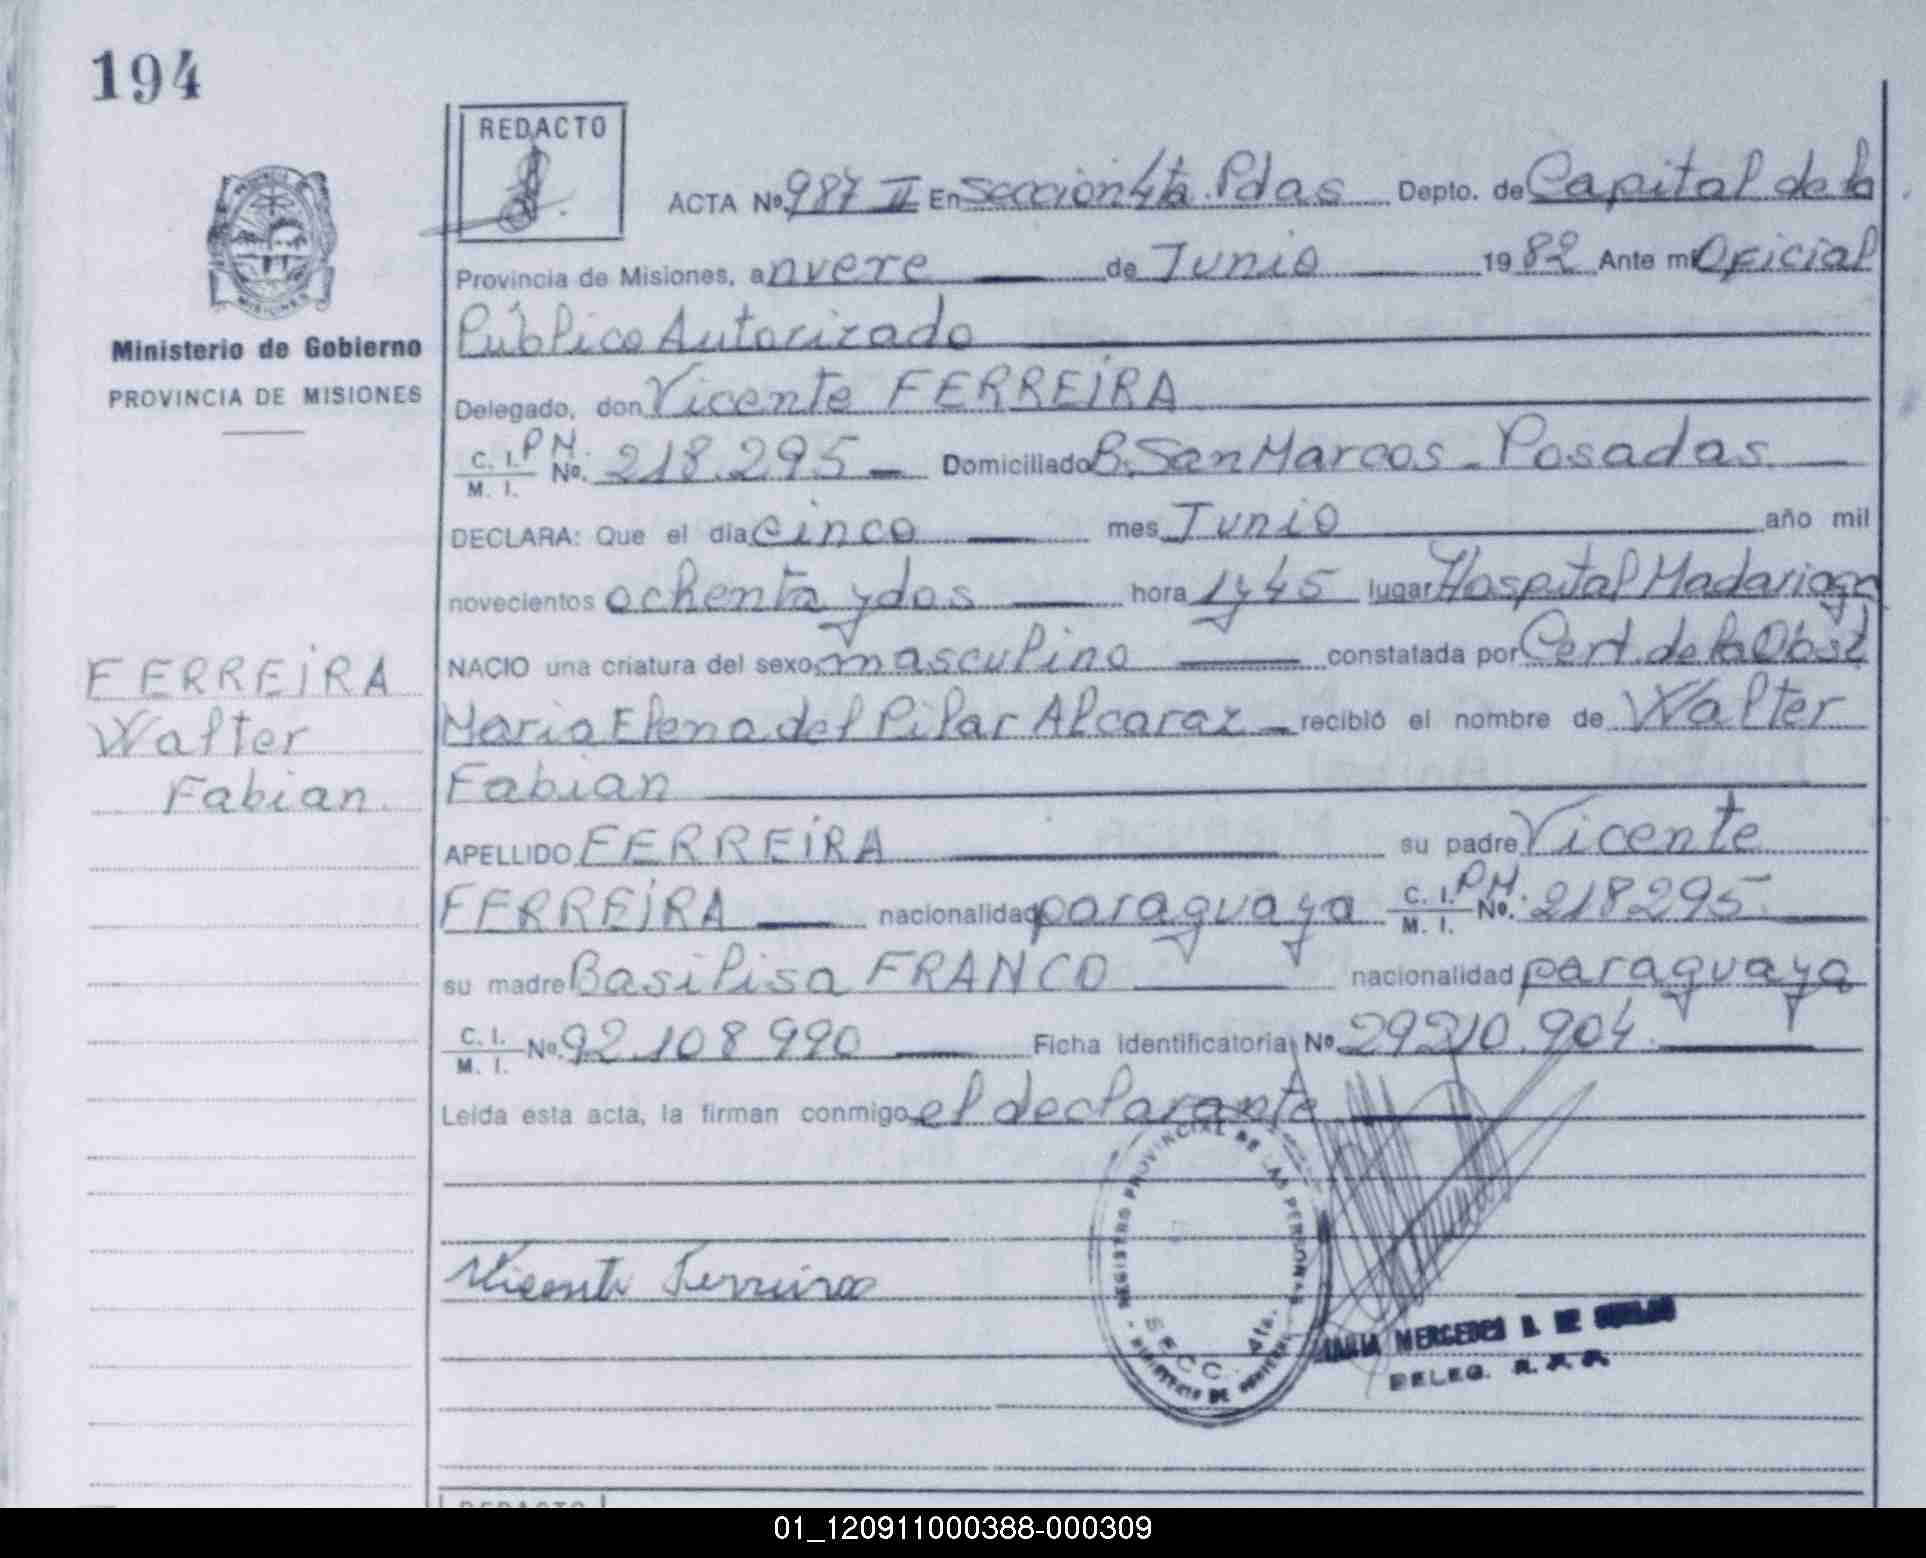 194
REDACTO
ACTA Nº 987 II En Seccion 4ta. Pdas Depto. de Capital de la
Provincia de Misiones, a nueve de Junio 1982 Ante mi Oficial
Público Autorizado
Ministerio de Gobierno
PROVINCIA DE MISIONES
MISIONES
Delegado, don Vicente FERREIRA
C. I. P N.
M. I. Nº. 218.295 Domiciliado B. San Marcos - Posadas
DECLARA: Que el día cinco mes Junio año mil
novecientos ochenta y dos hora 1 y 45 lugar Hospital Madariaga
NACIO una criatura del sexo masculino constatada por Cert. de la Obst
FERREIRA
Walter
Fabian
Maria Elena del Pilar Alcaraz recibió el nombre de Walter
Fabian
APELLIDO FERREIRA su padre Vicente
FERREIRA nacionalidad paraguaya C. I. P N. M. I. Nº. 218295
su madre Basilisa FRANCO nacionalidad paraguaya
C. I. M. I. Nº. 92.108.990 Ficha identificatoria Nº 29210.904
Leida esta acta, la firman conmigo el declarante
Vicente Ferreira
REGISTRO PROVINCIAL DE LAS PERSONAS
SECC. 4ta.
MERCEDES
DELEG. R.
REDACTO
01_120911000388-000309